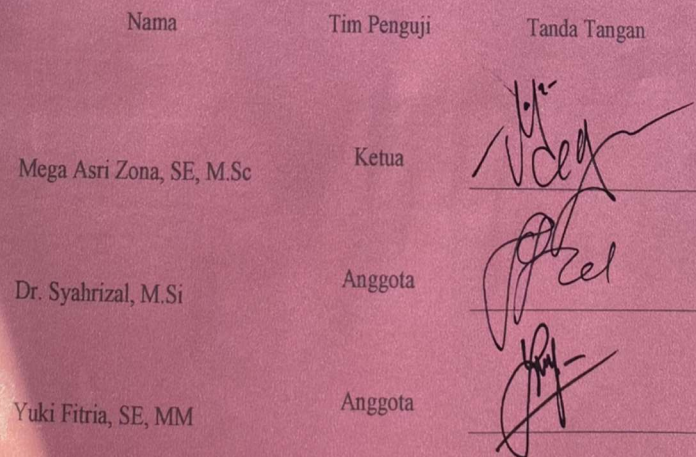 Nama Tim Penguji Tanda Tangan
Mega Asri Zona, SE, M.Sc Ketua
Dr. Syahrizal, M.Si Anggota
Yuki Fitria, SE, MM Anggota